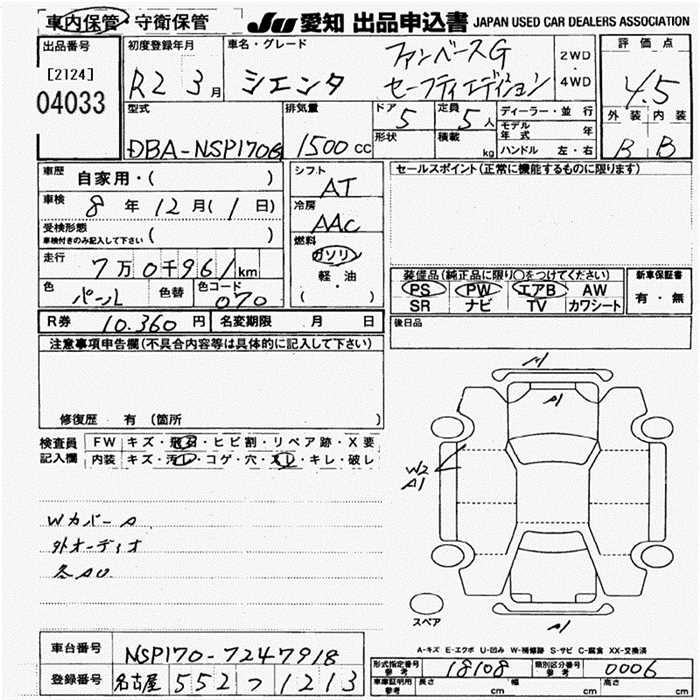 車内保管・守衛保管
JU 愛知 出品申込書 JAPAN USED CAR DEALERS ASSOCIATION
出品番号 初度登録年月 車名・グレード 評価点
[2124]
04033
R2 3月 シエンタ ファンベースG セーフティエディション 2WD・4WD 4.5
型式 排気量 ドア 定員 ディーラー・並行 外装 内装
DBA-NSP170G 1500cc 5 5人 B B
形状 積載 kg モデル年式 年
ハンドル 左・右
車歴 自家用・( )
シフト AT
セールスポイント(正常に機能するものに限ります)
車検 8年12月(1日)
冷房 AAC
受検形態 車検付きのみ記入して下さい ( )
燃料 ガソリン 軽・油 ( )
走行 7万0千961km
装備品(純正品に限り○をつけてください) 新車保証書
PS PW エアB AW 有・無
SR ナビ TV カワシート
色 パール 色替 色コード 070
R券 10,360円 名変期限 月 日
後日品
注意事項申告欄(不具合内容等は具体的に記入して下さい)
修復歴 有 (箇所 )
検査員記入欄 FW キズ・飛石・ヒビ割・リペア跡・X要
内装 キズ・汚レ・コゲ・穴・スレ・キレ・破レ
A1
W2
A1
A1
Wカバー
外オーディオ
スペア
A-キズ E-エクボ U-凹み W-補修跡 S-サビ C-腐食 XX-交換済
車台番号 NSP170-7247918
登録番号 名古屋 552 つ 1213
形式指定番号 参考 18108 類別区分番号 参考 0006
車庫証明用 参考 長さ cm 幅 cm 高さ cm